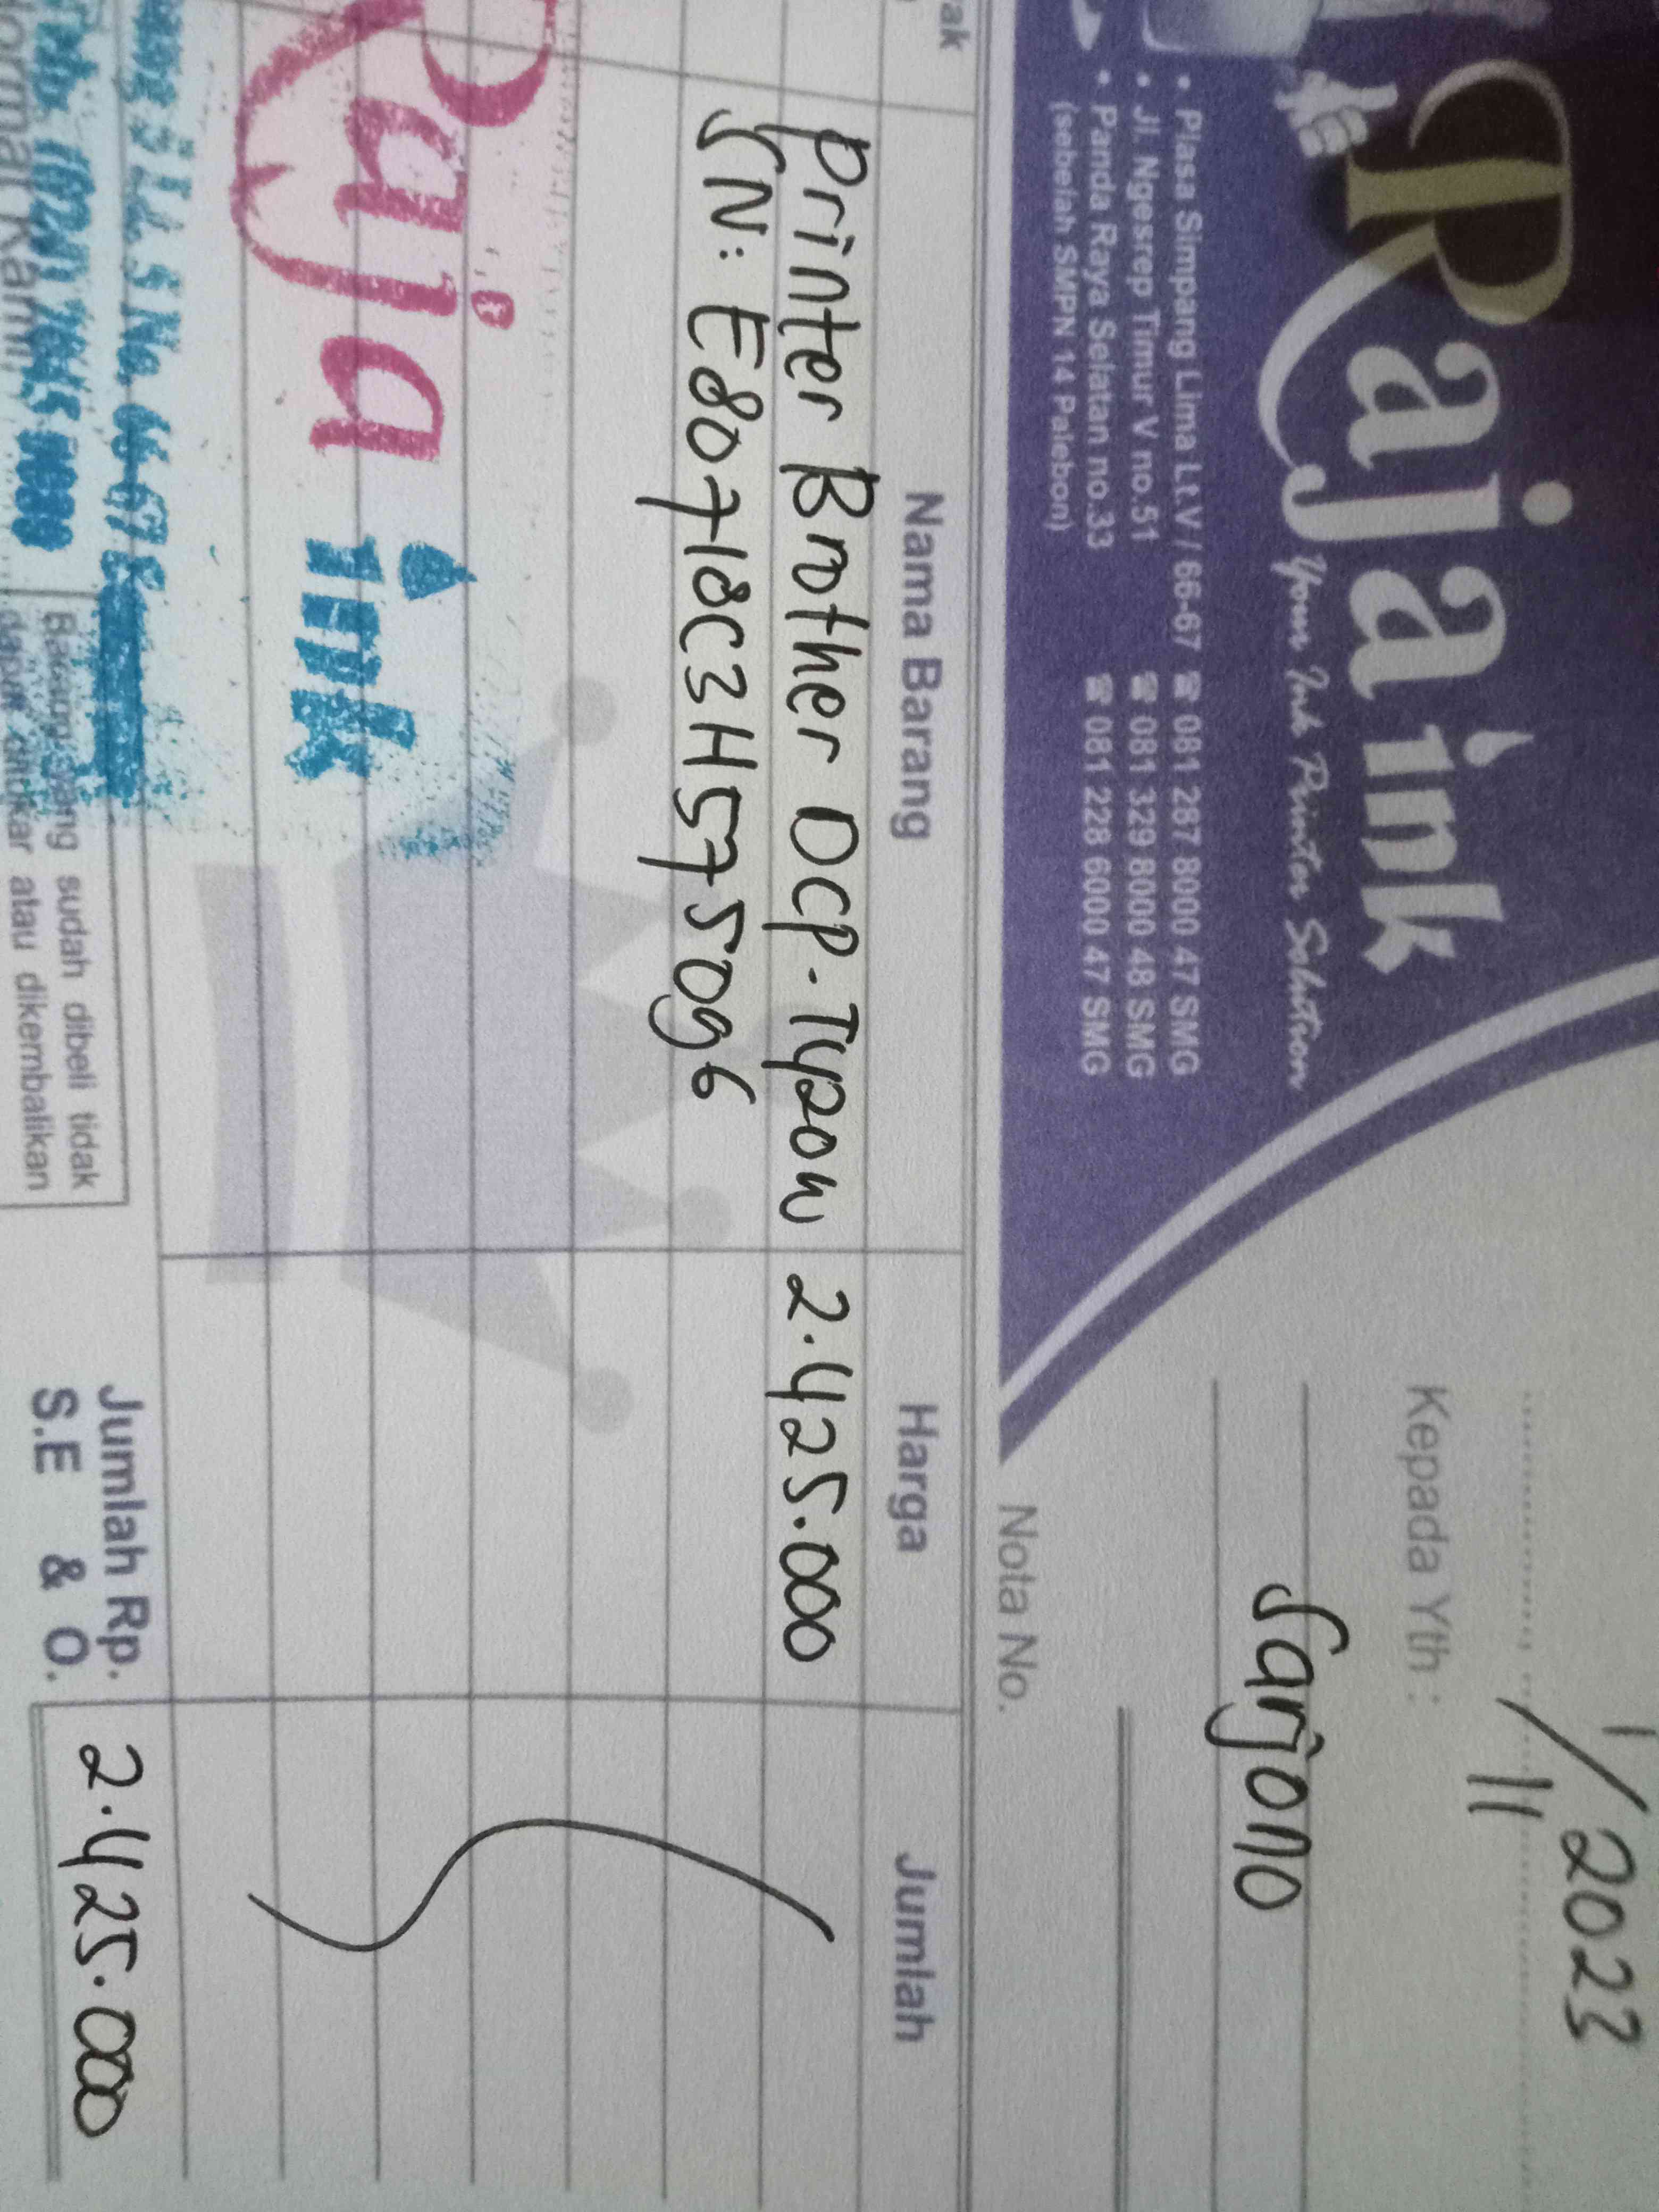 Raja ink
Your Ink Printer Solution
• Plasa Simpang Lima Lt.V / 66-67 ☎ 081 287 8000 47 SMG
• Jl. Ngesrep Timur V no.51 ☎ 081 329 8000 48 SMG
• Panda Raya Selatan no.33 ☎ 081 228 6000 47 SMG
(sebelah SMPN 14 Palebon)
1/11 2023
Kepada Yth :
Sarjono
Nota No.
ak Nama Barang Harga Jumlah
Printer Brother DCP-T420W 2.425.000
SN: E80718C3H575096
Raja ink
Lt. 5 No. 66-67
Barang yang sudah dibeli tidak
dapat ditukar atau dikembalikan
Jumlah Rp. 2.425.000
S.E & O.